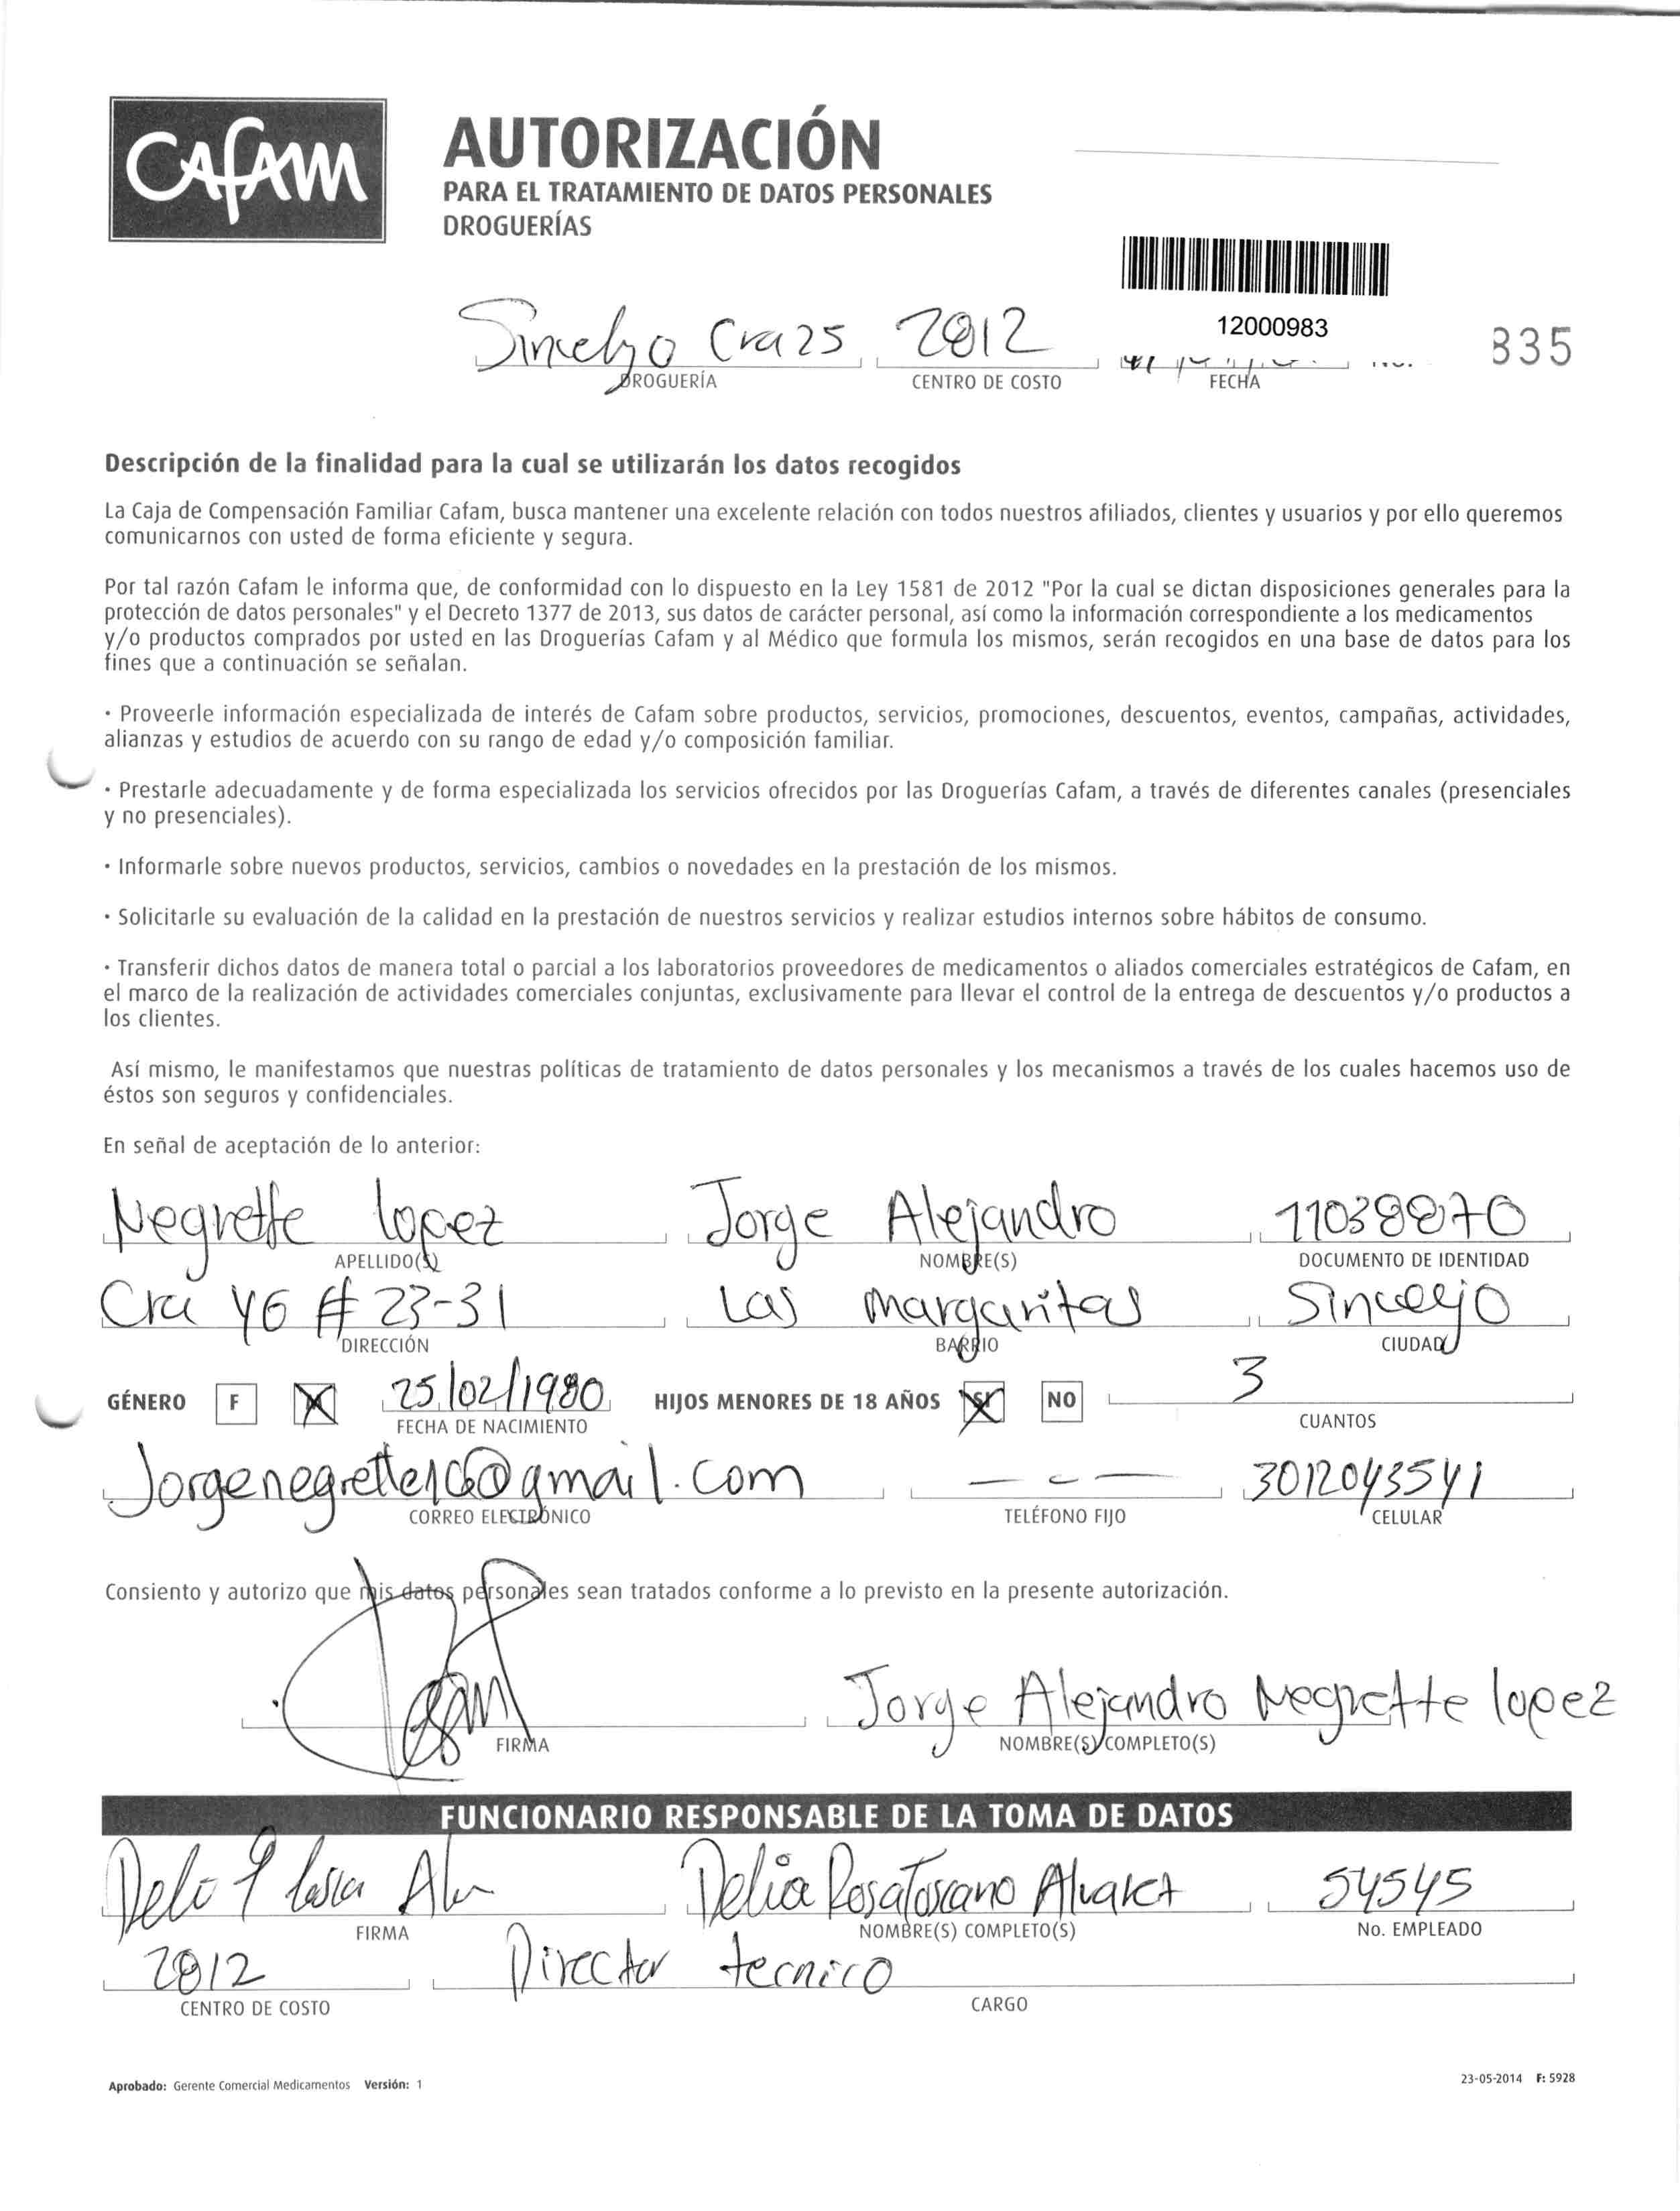 CAFAM
AUTORIZACIÓN
PARA EL TRATAMIENTO DE DATOS PERSONALES
DROGUERÍAS
12000983
Sincelejo Cra 25 2012 835
DROGUERÍA CENTRO DE COSTO FECHA
Descripción de la finalidad para la cual se utilizarán los datos recogidos
La Caja de Compensación Familiar Cafam, busca mantener una excelente relación con todos nuestros afiliados, clientes y usuarios y por ello queremos
comunicarnos con usted de forma eficiente y segura.
Por tal razón Cafam le informa que, de conformidad con lo dispuesto en la Ley 1581 de 2012 "Por la cual se dictan disposiciones generales para la
protección de datos personales" y el Decreto 1377 de 2013, sus datos de carácter personal, así como la información correspondiente a los medicamentos
y/o productos comprados por usted en las Droguerías Cafam y al Médico que formula los mismos, serán recogidos en una base de datos para los
fines que a continuación se señalan.
• Proveerle información especializada de interés de Cafam sobre productos, servicios, promociones, descuentos, eventos, campañas, actividades,
alianzas y estudios de acuerdo con su rango de edad y/o composición familiar.
• Prestarle adecuadamente y de forma especializada los servicios ofrecidos por las Droguerías Cafam, a través de diferentes canales (presenciales
y no presenciales).
• Informarle sobre nuevos productos, servicios, cambios o novedades en la prestación de los mismos.
• Solicitarle su evaluación de la calidad en la prestación de nuestros servicios y realizar estudios internos sobre hábitos de consumo.
• Transferir dichos datos de manera total o parcial a los laboratorios proveedores de medicamentos o aliados comerciales estratégicos de Cafam, en
el marco de la realización de actividades comerciales conjuntas, exclusivamente para llevar el control de la entrega de descuentos y/o productos a
los clientes.
Así mismo, le manifestamos que nuestras políticas de tratamiento de datos personales y los mecanismos a través de los cuales hacemos uso de
éstos son seguros y confidenciales.
En señal de aceptación de lo anterior:
Negrette lopez Jorge Alejandro 11038870
APELLIDO(S) NOMBRE(S) DOCUMENTO DE IDENTIDAD
Cra 46 # 23-31 Las margaritas Sincelejo
DIRECCIÓN BARRIO CIUDAD
GÉNERO F 25/02/1980 HIJOS MENORES DE 18 AÑOS SI NO 3
FECHA DE NACIMIENTO CUANTOS
Jorgenegrette16@gmail.com 3012043541
CORREO ELECTRÓNICO TELÉFONO FIJO CELULAR
Consiento y autorizo que mis datos personales sean tratados conforme a lo previsto en la presente autorización.
Jorge Alejandro Negrette lopez
FIRMA NOMBRE(S) COMPLETO(S)
FUNCIONARIO RESPONSABLE DE LA TOMA DE DATOS
Delia Rosa Toscano Alvarez 54545
FIRMA NOMBRE(S) COMPLETO(S) No. EMPLEADO
2012 Director tecnico
CENTRO DE COSTO CARGO
Aprobado: Gerente Comercial Medicamentos Versión: 1 23-05-2014 F: 5928